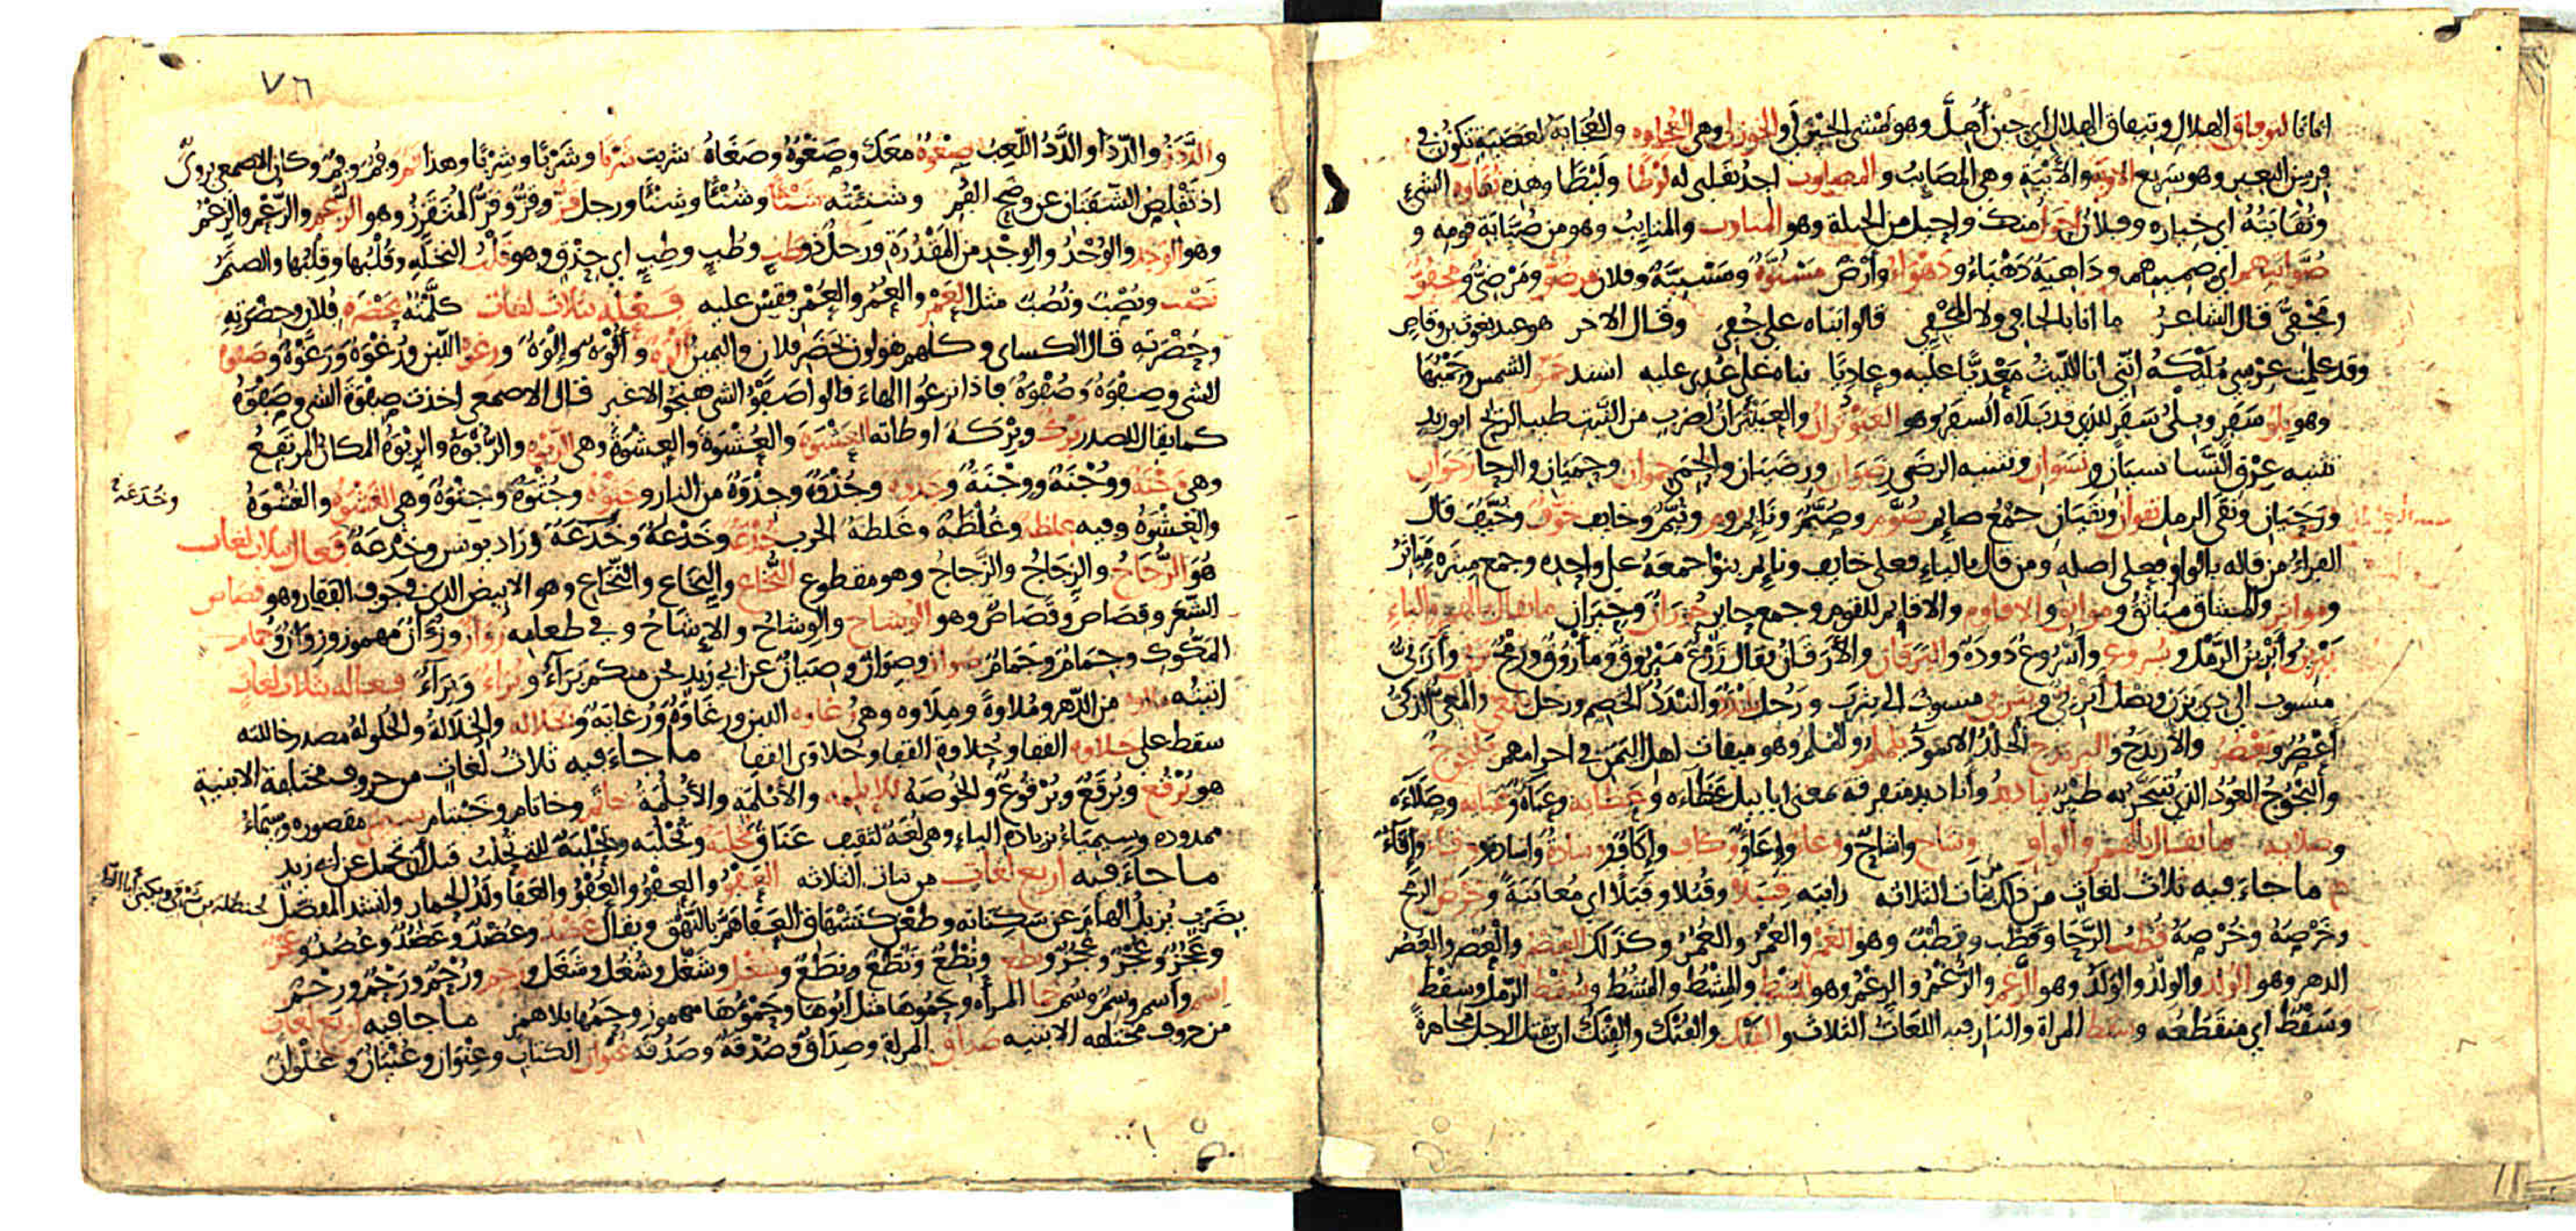 اتانا لتوفاق الهلال وتيفاق الهلال اي حين أُهِلَّ وهو مشي الخيزلى أو الخوزلى وهي العجاوة والعجاية لعَصَبَةٍ تكون في
فرسن البعير وهو سريع الاوبة والأيبة وهي المصائب والمصاوب اجد بقلبي له لوطا ولَيْطا وهذه نقاوة الشيء
ونُقايتُهُ اي خياره وفلان احول منك واحيل من الحيلة وهو المناوب والمناييب وهو من صُيّابة قومه و
صُوّابتهم اي صميمهم وداهية دَهْياءُ ودَهْواءُ وأرضٌ مَسْنُوّةٌ ومَسْنِيَّةٌ وفلان مرضوٌّ ومَرْضِيٌّ ومجفُوٌّ
ومَجْفِيٌّ قال الشاعر ما انا بالجافي ولا المَجْفِي قالوا بناه على جُفِيَ وقال الاخر هو عبد يغوث بن وقاص
وقد علمت عِرْسي مُلَيْكَةُ انّني انا الليثُ مَعْدِيّا عليه وعاديا بناه على عُدِيَ عليه اشتد حمو الشمس وحَمْيُها
وهو بِلْوُ سَفَرٍ وبِلْيُ سَفَرٍ للذي قد بَلاه السفر وهو العَبَوْثُران والعَبَيْثُرانُ لضرب من النبت طيب الريح ابو زيد
تثنيه عِرْق النَّسا نسيان ونسوان وتثنيه الرضى رِضوان ورِضَيان والحِمى حِموان وحِمَيان والرحا رَحَوان
ورَحَيان ونقى الرمل نقوان ونقيان جمع صائم صُوَّم وصُيَّمٌ ونايم نوم ونُيَّمٌ وخايف خوَّف وخُيَّف قال
الفراءُ من قاله بالواو فعلى اصله ومن قال بالياء فعلى خايف ونايم بنوا جمعَهُ على واحده وجمع مِيثَرة مَياثرُ
ومواثر والميثاق مياثق ومواثق والاقاوم والاقايم للقوم وجمع جاير جُوران وجِيران ما يقال بالهمز والياء
يَبْرينُ وأبْرينُ الرَّمْل ويسروع وأُسْروع دُودة واليرقان والأرَقان يقال زَرْعٌ مَيْروقٌ ومأروقٌ ورُمحٌ يزني وأزَنيٌّ
منسوب الى ذي يزن ونصل أثربيٌّ ويثربي منسوب الى يثرب ورجل يلندد والندد الخصم ورجل يلمعي والمعيّ الذكيُّ
أعْصُرُ ويَعْصُرُ والأرندج واليرندج الجلد الاسود يلملم والملم وهو ميقات اهل اليمن في احرامهم يلنجوج
وألنجوج العُودُ الذي يُتبخَّر به طيرٌ يناديد وأناديد متفرقة بمعنى ابابيل عَظاءه وعَظايه وعَباءة وعَبايه وصَلاءه
وصلايه ما يقال بالهمز والواو وشاح واشاح ووعاء وإعاء ووكاف وإكاف ووسادة واسادة ووقاء وإقاء
ما جاءَ فيه ثلاث لغات من بنات الثلاثه رايته قِبَلا وقُبُلا وقَبَلا اي معاينةً وخَرْص الرمح
وخِرْصه وخُرْصه قُطب الرَّحا وقَطْب وقِطْب وهو العَمْرُ والعُمْرُ والعُمُرُ وكذلك العصر والعِصر والعُصُر
الدهر وهو الوُلد والولدُ والوَلَدُ وهو الزَّعم والزُّعْمُ والزِعْمُ وهو المَشط والمِشْط والمُشط وسَقْط الرمل وسِقْط
وسُقْطٌ اي منقطعه وسقط المراة والنار فيه اللغات الثلاث والفَتك والفُتك والفِتك ان يقتل الرجل مجاهرةً
٧٦
والدَّدَنُ والدَّدا والدَّدُ اللَّعِبُ صِغْوُهُ معك وصَغْوُهُ وصَغَاهُ شربت شَرْبا وشُرْبًا وشِرْبًا وهذا فَم وفُم وفِم وكان الاصمعي يروي
اذ تَقْلِصُ الشَّفَتان عن وضح الفُم وشَنِئْتُه شَنْئًا وشُنْئًا وشِنْئًا ورجل قَزٌّ وقِزٌّ وقُزٌّ للمُتقزّز وهو الرَّغم والرُّغم والرِّغم
وهو الوَجد والوُجْدُ والوِجْد من المَقْدُرَة ورجل ذو طَبٍ وطُبٍ وطِبٍ اي حِذْقٍ وهو قَلْبُ النخلة وقُلْبُها وقِلْبُها والصنم
نَصْب ونُصْب ونُصُب مثل العَمْر والعُمُر والعُمْر فقس عليه فعله بثلاث لغات كلَّمْتُه بحَضْرَة فلان وحِضْرَتِه
وحُضْرَتِه قال الكساي وكلهم يقولون بحَضَر فلان واليمين ألوة وأُلْوَة وإلْوَة ورغوة اللبن ورُغْوة ورَغْوة وصفوة
الشي وصِفْوَة وصُفْوة فاذا نزعوا الهاءَ قالوا صَفْوُ الشي ففتحوا لا غير قال الاصمعي اخذت صِفْوَةَ الشي وصَفْوَهُ
كما يقال للصدر بَرْك وبِرْكَة اوطاته العَشْوَة والعُشْوَة والعِشْوَة وهي الرَّبوة والرُّبْوَة والرِّبْوَةُ المكان المرتفع
وهي وَجْنَة ووُجْنَة ووِجْنَة وجَذوة وجُذْوَة وجِذْوَة من النار وجَثْوة وجُثْوَة وجِثْوَة وهي الغَشْوَة والغُشْوَة
والغِشْوَة وفيه غِلظة وغُلْظة وغَلظة الحرب خُدْعَة وخَدْعَة وخُدَعَة وزاد يونس وخِدْعة فعال بثلاث لغات
وخُدَعَةٌ
هو الزُّجاج والزِجَاجُ والزَّجاجُ وهو مقطوع النُّخاع والنِخَاع والنَّخاع وهو الابيض الذي في جوف الفقار وهو قصاص
الشعر وقِصَاص وقَصَاص وهو الوِشاح والوِشاح والإشاح وفي طعامه زُوان وزُؤان مهموز وزِوان وجمام
المكوك وجِمَام وجَمَام صوان وصِوان وصِيان عن ابي زيد نحن منكم بَرَاءٌ وبُراء وبِرَاء فعاله بثلاث لغات
اتيته ملاوة من الدهر ومُلاوة ومِلاوه وهي رغاوة اللبن ورِغاوة ورُغاية وخلاله والخِلالة والخُلولة مصدر خاللته
سقط على حلاوة القفا وحُلاوة القفا وحلاوى القفا ما جاءَ فيه ثلاث لغات من حروف مختلفة الابنية
هو بُرْقُع وبُرْقَع وبُرْقُوع والخُوصة الإبلمة والأبْلَمة والأُبْلُمة خاتم وخاتام وخَيْتام سيمى مقصوره وسيماءُ
ممدوده وسيمياءُ بزيادة الياء وهي لغة لثقيف عَناق تحلبة وتُحْلُبه وتِحْلِبَة للتي تُحلب قبل ان تحمل عن ابي زيد
ما جاءَ فيه اربع لغات من بنات الثلاثه العَفْوُ والعِفْوُ والعُفْوُ والعَفا ولَدُ الحمار وانشد المفضل
بضرب يُزيلُ الهامَ عن سكِناته وطعن كتَشْهاق العَفا همَّ بالنَّهق ويقال عَضُد وعَضْد وعُضْد وعُضُد وعَجُز
وعَجْز وعُجْز وعُجُز ونِطع ونَطْع ونَطَع ونِطَع وشغل وشَغْل وشُغُل وشَغَل ورحم ورُحْم ورَحْم ورِحْم
اسم وأُسم وسِم وسُم حما المراة وحَمُوها مثل ابُوها وحَمْؤُها مهموز وحَمُها بلا همز ما جا فيه اربع لغات
من حروف مختلفه الابنيه صَداق المراة وصِدَاق وصُدْقَة وصَدُقَة عُنوان الكتاب وعِنْوان وعُنْيَان وعُلْوان